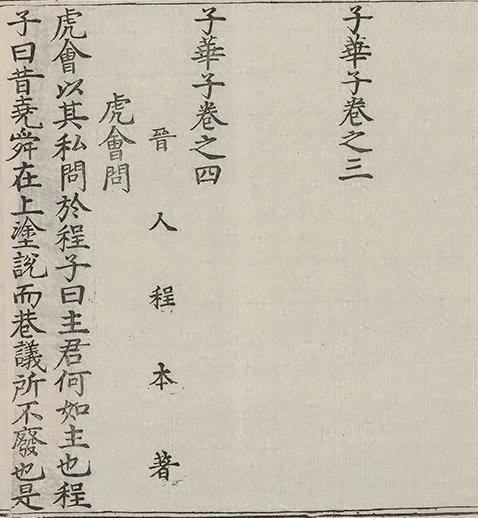 子華子卷之三
子華子卷之四
晉人程本著
虎會問
虎會以其私問於程子曰主君何如主也程
子曰昔堯舜在上塗說而巷議所不廢也是